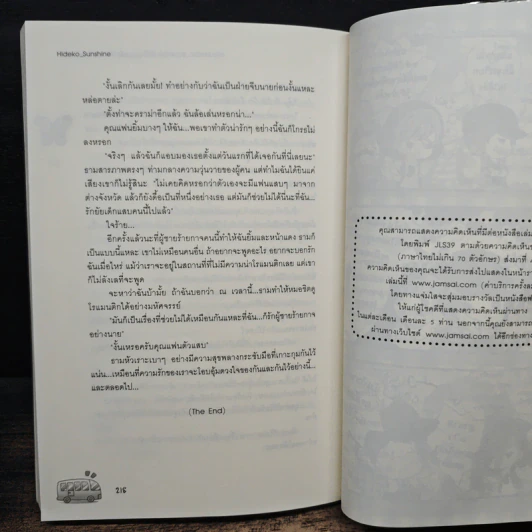 Hideko_Sunshine
'งั้นเลิกกันเลยมั้ย! ทำอย่างกับว่าฉันเป็นฝ่ายจีบนายก่อนงั้นแหละ
หล่อตายล่ะ'
'ตั้งท่าจะดราม่าอีกแล้ว ฉันล้อเล่นหรอกน่า...'
คุณแฟนยิ้มบางๆ ให้ฉัน...พอเขาทำตัวน่ารักๆ อย่างนี้ฉันก็โกรธไม่
ลงหรอก
'จริงๆ แล้วฉันก็แอบมองเธอตั้งแต่วันแรกที่ได้เจอกันที่นี่เลยนะ'
ธามสารภาพตรงๆ ท่ามกลางความวุ่นวายของผู้คน แต่ทำไมฉันได้ยินแค่
เสียงเขาก็ไม่รู้สินะ 'ไม่เคยคิดหรอกว่าตัวเองจะมีแฟนแสบๆ มาจาก
ต่างจังหวัด แล้วก็ยังดื้อเป็นที่หนึ่งอย่างเธอ แต่มันก็ช่วยไม่ได้นี่นะที่ฉัน...
รักยัยเด็กแสบคนนี้ไปแล้ว'
ใจร้าย...
อีกครั้งแล้วนะที่ผู้ชายร้ายกาจคนนี้ทำให้ฉันยิ้มและหน้าแดง ธามก็
เป็นแบบนี้แหละ เขาไม่เหมือนคนอื่น ถ้าอยากจะพูดอะไร อยากจะบอกรัก
ฉันเมื่อไหร่ แม้ว่าเราจะอยู่ในสถานที่ที่ไม่มีความน่าโรแมนติกเลย แต่เขา
ก็ไม่ลังเลที่จะพูด
จะหาว่าฉันบ้ามั้ย ถ้าฉันบอกว่า ณ เวลานี้...ธามทำให้หมอชิตดู
โรแมนติกได้อย่างมหัศจรรย์
'มันก็เป็นเรื่องที่ช่วยไม่ได้เหมือนกันแหละที่ฉัน...ก็รักผู้ชายร้ายกาจ
อย่างนาย'
'งั้นเหรอครับคุณแฟนตัวแสบ'
ธามหัวเราะเบาๆ อย่างมีความสุขพลางกระชับมือที่เกาะกุมกันไว้
แน่น...เหมือนที่ความรักของเราจะโอบอุ้มดวงใจของกันและกันไว้อย่างนี้...
และตลอดไป...
(The End)
218
คุณสามารถแสดงความคิดเห็นที่มีต่อหนังสือเล่ม
โดยพิมพ์ JLS39 ตามด้วยความคิดเห็น
(ภาษาไทยไม่เกิน 70 ตัวอักษร) ส่งมาที่
ความคิดเห็นของคุณจะได้รับการส่งไปแสดงในหน้าราย
เล่มนี้ที่ www.jamsai.com (ค่าบริการครั้งละ
โดยทางแจ่มใสจะสุ่มมอบรางวัลเป็นหนังสือ
ให้แก่ผู้โชคดีที่แสดงความคิดเห็นผ่านทาง
ในแต่ละเดือน เดือนละ 5 ท่าน นอกจากนี้คุณยังสามารถ
ผ่านทางเว็บไซต์ www.jamsai.com ได้อีกช่องทาง